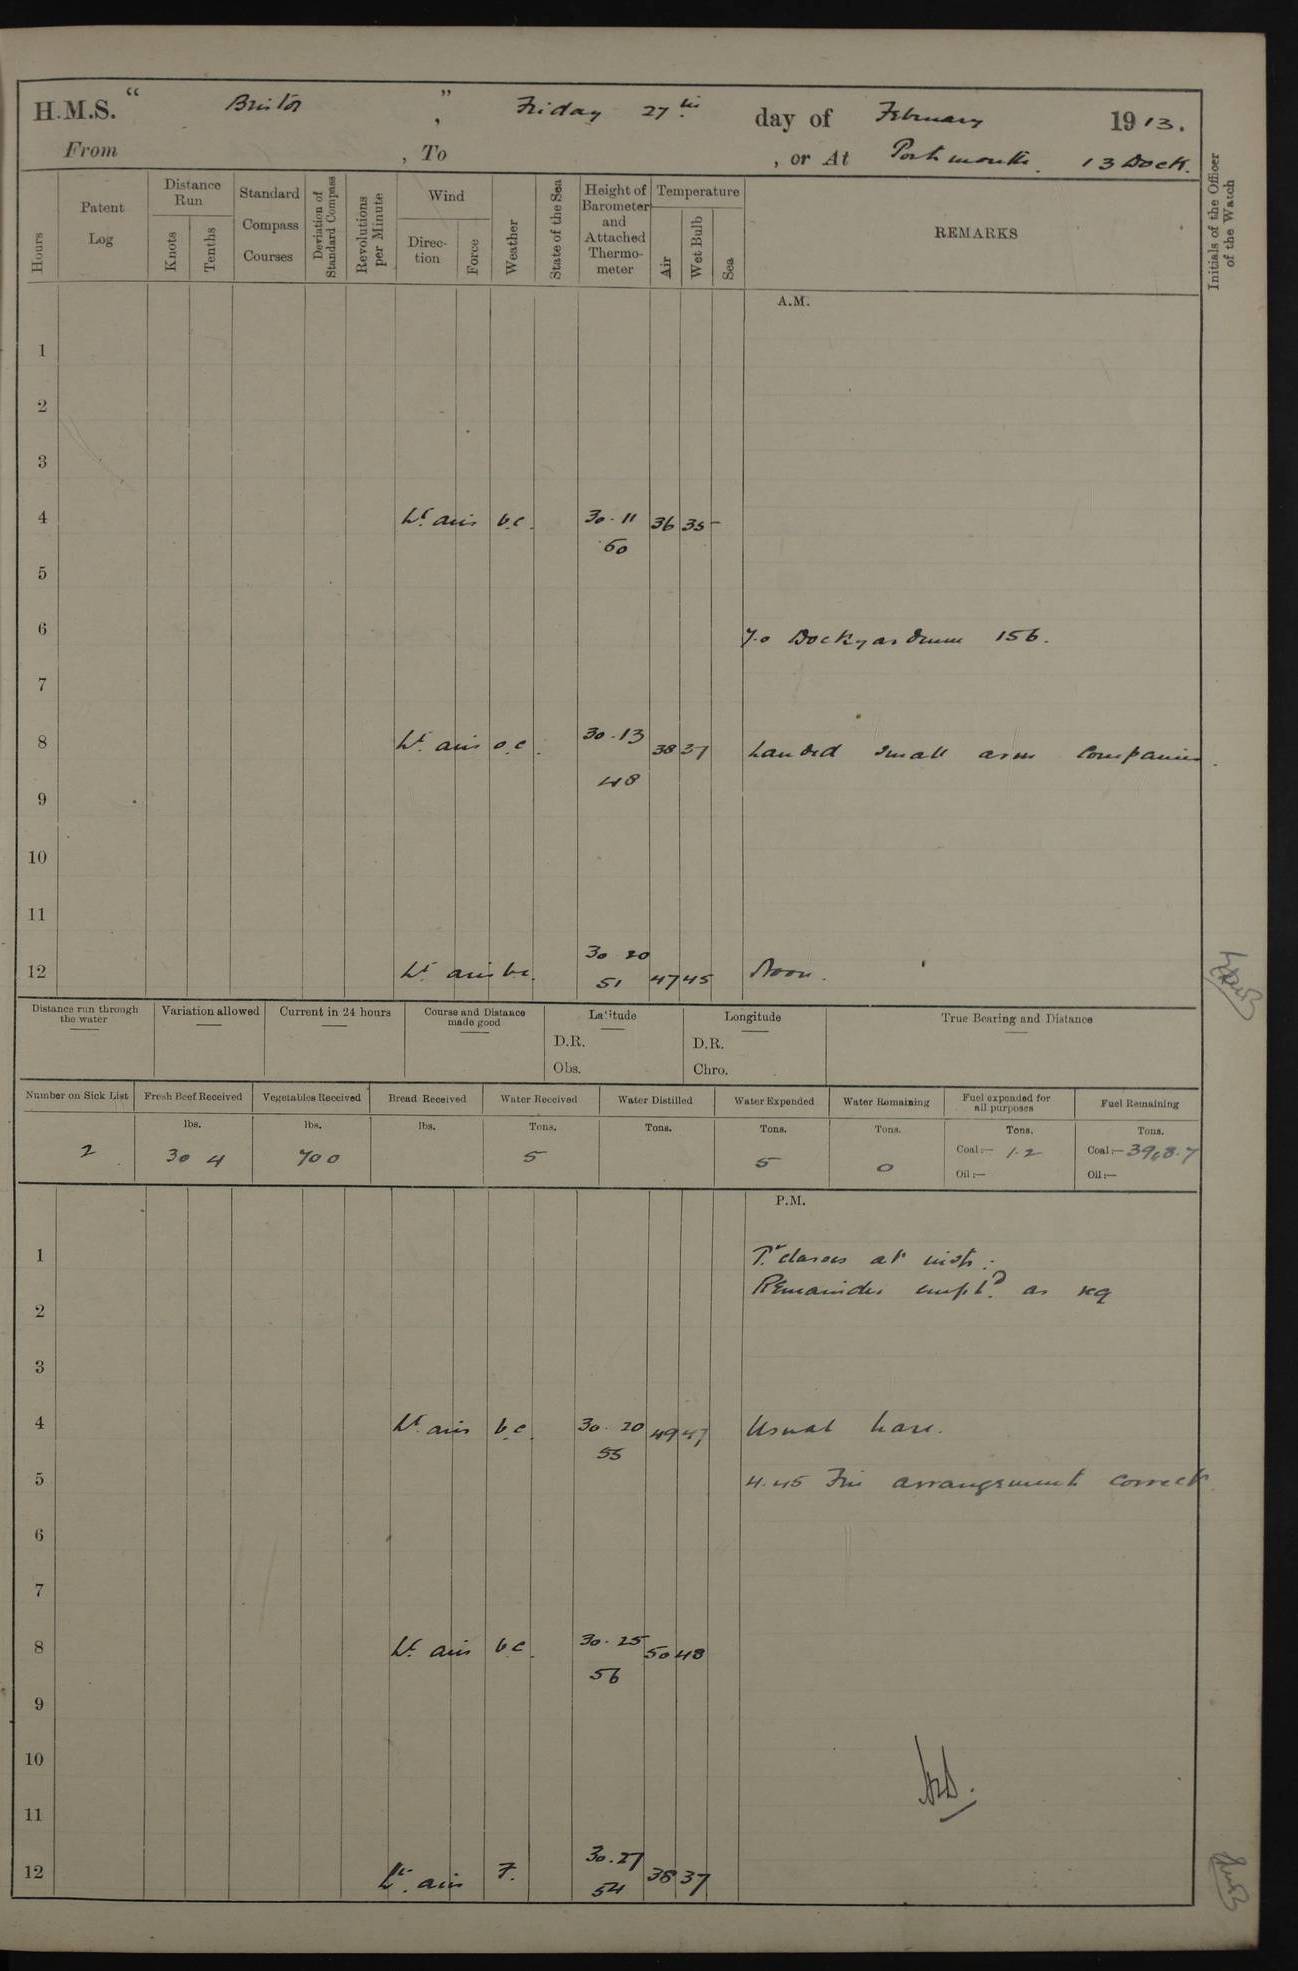 H.M.S. “ Bristol ” , Friday 27th day of February 1913.
From , To , or At Portsmouth. 13 Dock.
Hours
Patent Log
Distance Run
Knots
Tenths
Standard Compass Courses
Deviation of Standard Compass
Revolutions per Minute
Wind
Direction
Force
Weather
State of the Sea
Height of Barometer and Attached Thermometer
Temperature
Air
Wet Bulb
Sea
REMARKS
Initials of the Officer of the Watch
A.M.
1
2
3
4 Lt airs b.c. 30.11 36 35
60
5
6 7.0 Dockyardmen 156.
7
8 Lt airs o.c. 30.13 38 37 Landed small arm companies.
48
9
10
11
12 Lt airs bc. 30 20 47 45 Noon.
51
Distance run through the water
Variation allowed
Current in 24 hours
Course and Distance made good
Latitude
D.R.
Obs.
Longitude
D.R.
Chro.
True Bearing and Distance
Number on Sick List
Fresh Beef Received
Vegetables Received
Bread Received
Water Received
Water Distilled
Water Expended
Water Remaining
Fuel expended for all purposes
Fuel Remaining
lbs. lbs. lbs. Tons. Tons. Tons. Tons. Tons. Tons.
2 304 700 5 5 0 Coal:— 1.2 Coal:—
Oil:— Oil:—
P.M.
1 Tr classes at instr:
Remainder empld as req
2
3
4 Lt airs b.c. 30.20 49 47 Usual leave.
55
5 4.45 Fire arrangements correct
6
7
8 Lt airs b.c. 30.25 50 48
56
9
10
11
12 Lt. airs F. 30.27 38 37
54